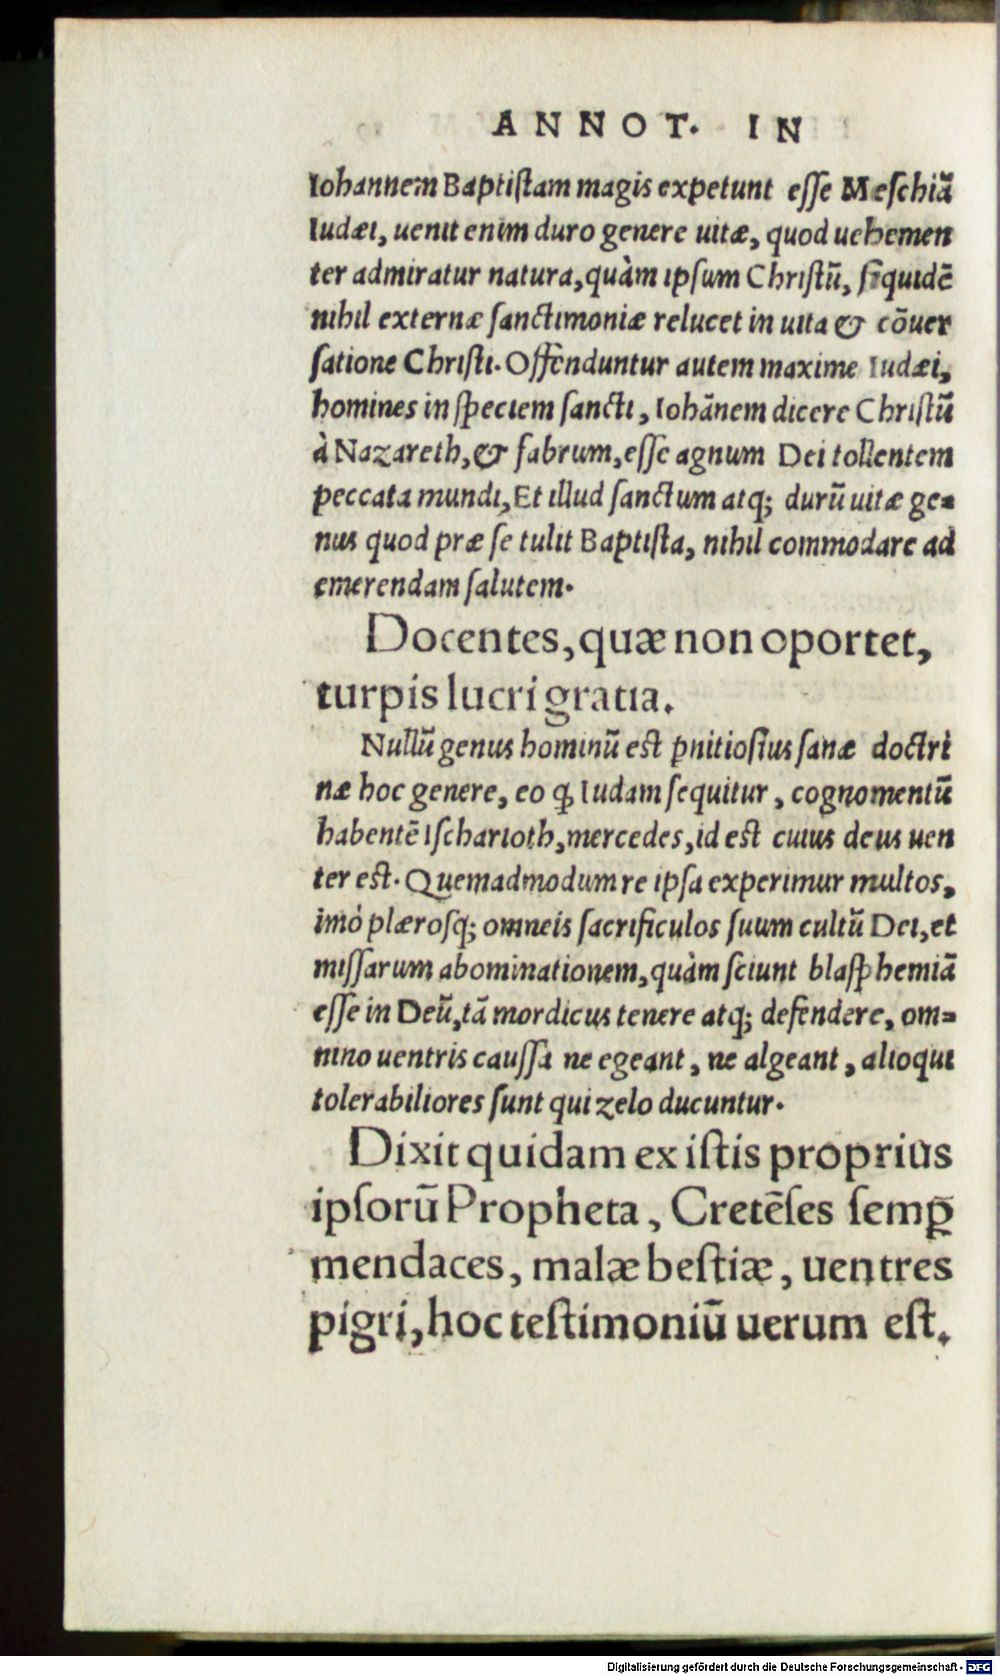 ANNOT. IN
Iohannem Baptiſtam magis expetunt eſſe Meſchiã
Iudæi, uenit enim duro genere uitæ, quod uehemen
ter admiratur natura, quàm ipſum Chriſtũ, ſiquidẽ
nihil externæ ſanctimoniæ relucet in uita & cõuer
ſatione Chriſti. Offenduntur autem maxime Iudæi,
homines in ſpeciem ſancti, Iohãnem dicere Chriſtũ
à Nazareth, & fabrum, eſſe agnum Dei tollentem
peccata mundi, Et illud ſanctum atq; durũ uitæ ge=
nus quod præ ſe tulit Baptiſta, nihil commodare ad
emerendam ſalutem.
Docentes, quæ non oportet,
turpis lucri gratia.
Nullũ genus hominũ eſt ꝑnitioſius ſanæ doctri
næ hoc genere, eo ꝙ Iudam ſequitur, cognomentũ
habentẽ Iſcharioth, mercedes, id eſt cuius deus uen
ter eſt. Quemadmodum re ipſa experimur multos,
imò plæroſq; omneis ſacrificulos ſuum cultũ Dei, et
miſſarum abominationem, quàm ſciunt blaſphemiã
eſſe in Deũ, tã mordicus tenere atq; defendere, om=
nino uentris cauſſa ne egeant, ne algeant, alioqui
tolerabiliores ſunt qui zelo ducuntur.
Dixit quidam ex iſtis proprius
ipſorũ Propheta, Cretẽſes ſemꝑ
mendaces, malæ beſtiæ, uentres
pigri, hoc teſtimoniũ uerum eſt.
Digitalisierung gefördert durch die Deutsche Forschungsgemeinschaft - DFG